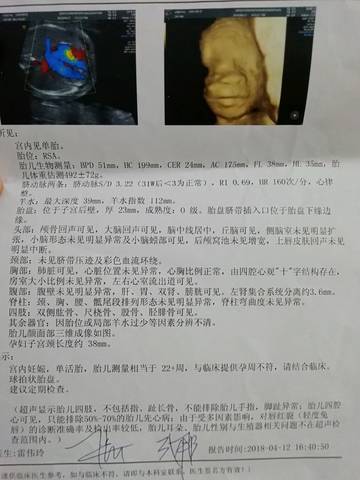 所见:
宫内见单胎。
胎位: RSA。
胎儿生物测量: BPD 51mm, HC 199mm, CER 24mm, AC 175mm, FL 38mm, HL 35mm, 胎
儿体重估测492±72g。
脐动脉两条: 脐动脉S/D 3.22 (31W后<3为正常), RI 0.69, HR 160次/分, 心律
整。
羊水: 最大深度 39mm, 羊水指数 112mm。
胎盘: 位于子宫后壁, 厚 23mm, 成熟度: 0 级。胎盘脐带插入口位于胎盘下缘边
缘。
头部: 颅骨回声可见, 大脑回声可见, 脑中线居中, 丘脑可见, 侧脑室未见明显扩
张, 小脑形态未见明显异常及小脑蚓部可见, 后颅窝池未见增宽, 上唇皮肤回声未见
明显中断。
颈部: 未见脐带压迹及彩色血流环绕。
胸部: 肺脏可见, 心脏位置未见异常, 心胸比例正常, 由四腔心观"十"字结构存在,
房室大小比例未见异常, 左右心室流出道可见。
腹部: 腹壁未见明显异常, 肝、胃、双肾、膀胱可见。左肾集合系统分离约3.6mm。
脊柱: 颈、胸、腰、骶尾段排列形态未见明显异常, 脊柱弯曲度未见异常。
四肢: 双侧肱骨、尺桡骨、股骨、胫腓骨可见。
其余器官: 因胎位或局部羊水过少等因素分辨不清。
胎儿颜面部三维成像如图。
孕妇子宫颈长度约 38mm。
示:
宫内妊娠, 单活胎, 胎儿测量相当于 22+周, 与临床提供孕周不符, 请结合临床。
球拍状胎盘。
建议定期检查。
(超声显示胎儿四肢, 不包括指, 趾长骨, 不能排除胎儿手指, 脚趾异常; 胎儿四腔
心可见, 只能排除50%-70%的胎儿先心病; 由于受多因素影响, 对唇红裂 (轻度兔
唇) 的诊断准确率及检出率较低, 胎儿耳朵、胎儿性别与生殖器相关问题不在超声检
查范围内。)
医生: 雷伟玲
报告时间:2018-04-12 16:40:50
请供临床医生参考, 如与临床不符, 请即与本科室联系, 医生签名方有效!)